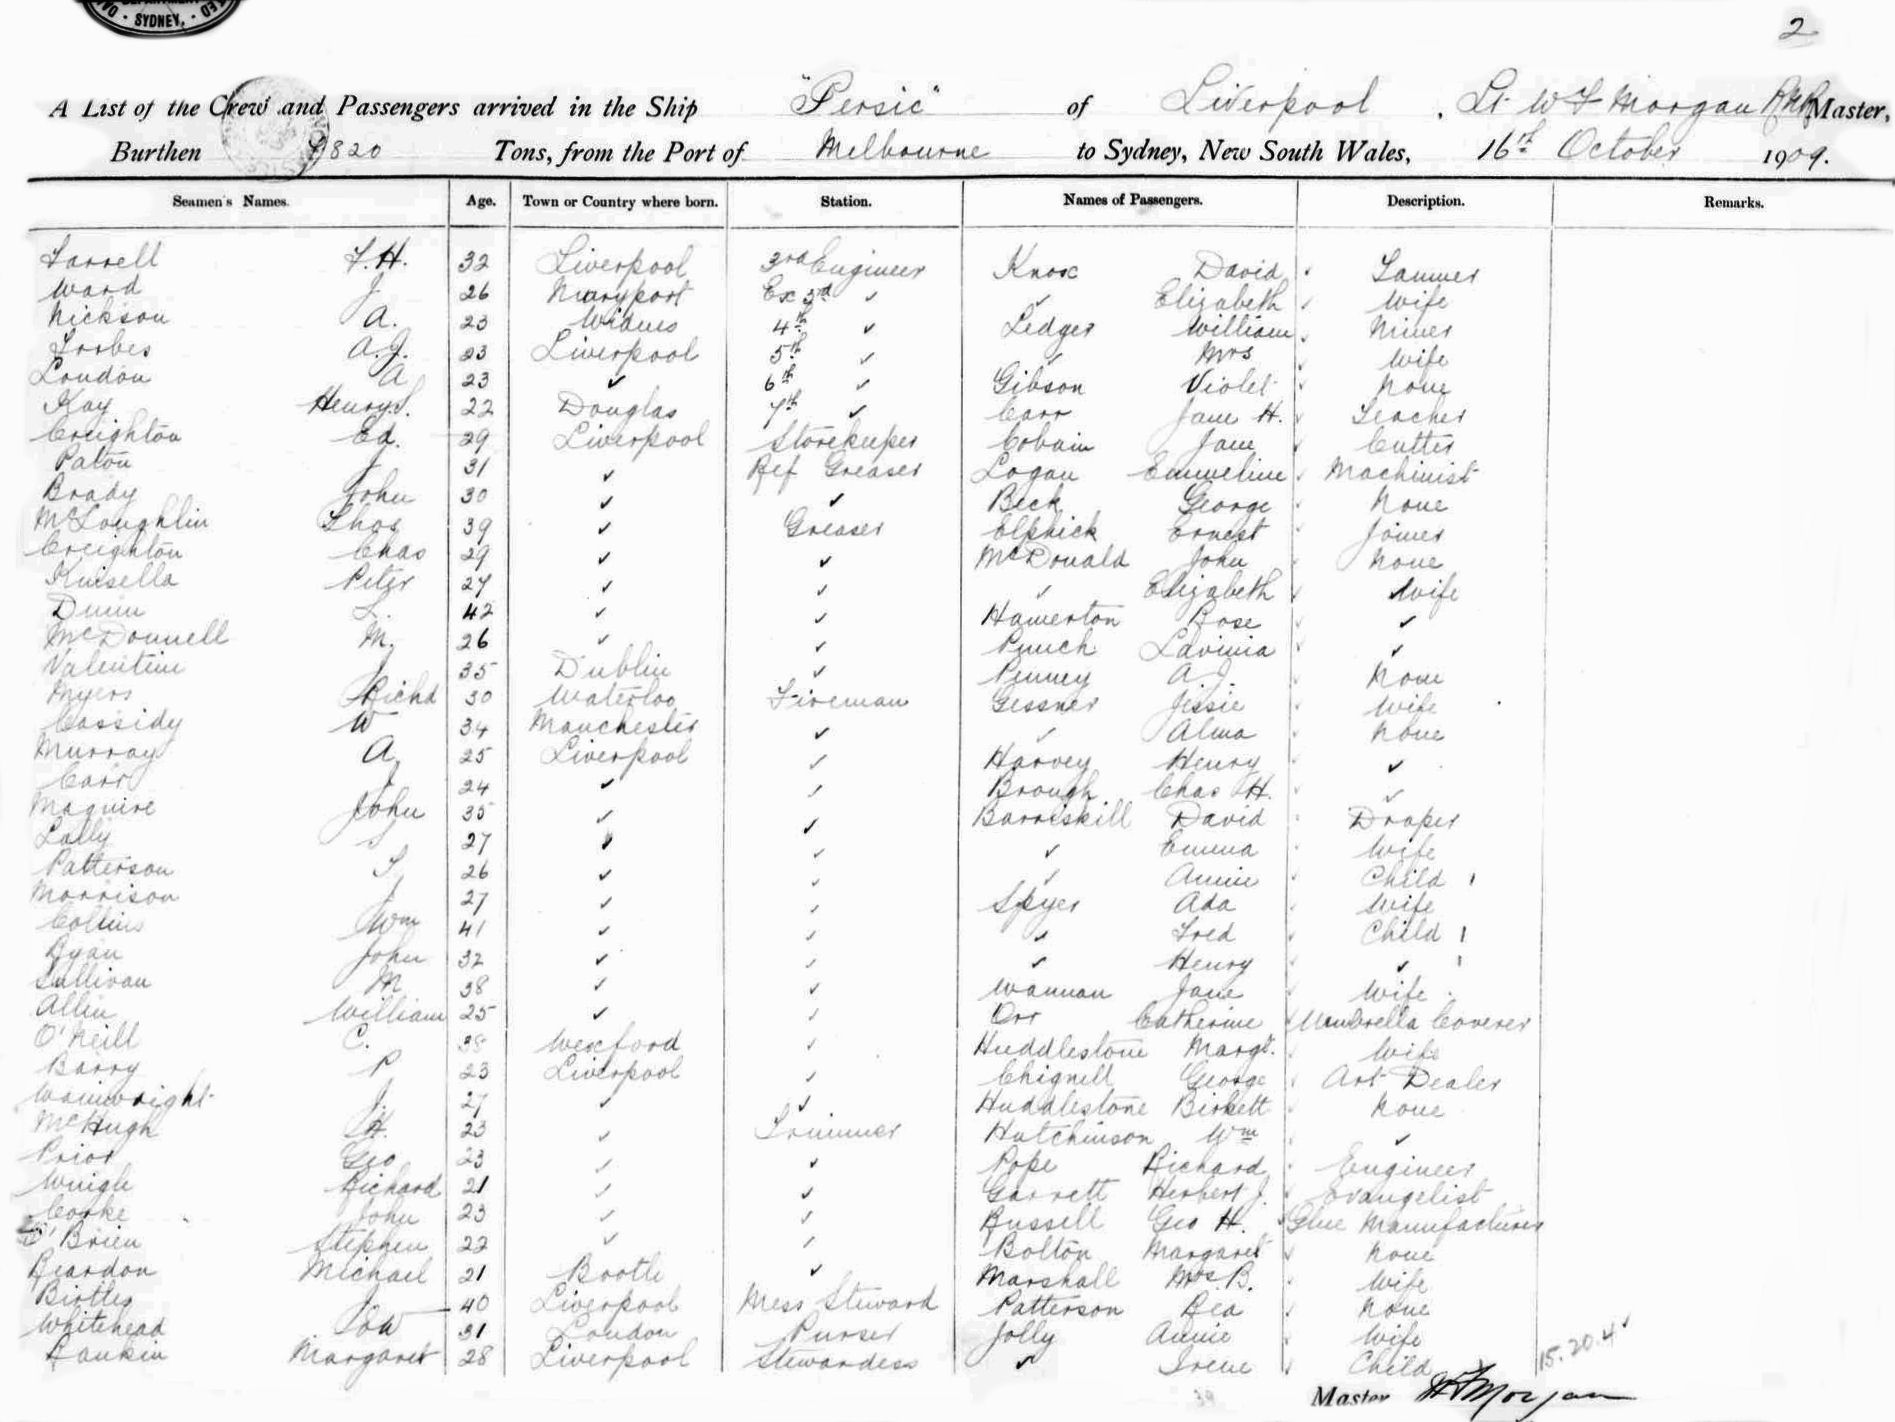 SYDNEY.
2
A List of the Crew and Passengers arrived in the Ship "Persic" of Liverpool, Lt W F Morgan RNR Master,
Burthen 7820 Tons, from the Port of Melbourne to Sydney, New South Wales, 16th October 1909.
Seamen's Names. Age. Town or Country where born. Station. Names of Passengers. Description. Remarks.
Farrell F.H. 32 Liverpool 3rd Engineer Knox David ✓ Farmer
Ward J 26 Maryport Ex 3rd ✓ ✓ Elizabeth ✓ Wife
Nickson A. 23 Widnes 4th ✓ Ledger William ✓ Miner
Forbes A.J. 23 Liverpool 5th ✓ ✓ Mrs ✓ Wife
London A 23 ✓ 6th ✓ Gibson Violet ✓ None
Kay Henry S. 22 Douglas 7th ✓ Carr Jane H. ✓ Teacher
Creighton Ed. 29 Liverpool Storekeeper Cobain Jane ✓ Cutter
Paton J 31 ✓ Ref Greaser Logan Emmeline ✓ Machinist
Brady John 30 ✓ ✓ Beck George ✓ None
McLoughlin Thos 39 ✓ Greaser Elphick Ernest ✓ Joiner
Creighton Chas 29 ✓ ✓ McDonald John ✓ None
Kinsella Peter 27 ✓ ✓ ✓ Elizabeth ✓ Wife
Dunn L. 42 ✓ ✓ Hamerton Rose ✓ ✓
McDonnell M. 26 ✓ ✓ Punch Lavinia ✓ ✓
Valentine J 35 Dublin ✓ Penney A J. ✓ None
Myers Richd 30 Waterloo Fireman Gessner Jessie ✓ Wife
Cassidy W 34 Manchester ✓ ✓ Alma ✓ None
Murray A 25 Liverpool ✓ Harvey Henry ✓ ✓
Carr J 24 ✓ ✓ Brough Chas H. ✓ ✓
Maguire John 35 ✓ ✓ Barriskill David Draper
Lally 27 ✓ ✓ ✓ Emma Wife
Patterson T 26 ✓ ✓ ✓ Annie ✓ Child 1
Morrison J 27 ✓ ✓ Spyer Ada Wife
Collins Wm 41 ✓ ✓ ✓ Fred ✓ Child 1
Ryan John 32 ✓ ✓ ✓ Henry ✓ ✓ 1
Sullivan M 38 ✓ ✓ Wannan Jane ✓ Wife
Allin William 25 ✓ ✓ Orr Catherine ✓ Umbrella Coverer
O'Neill C. 38 Wexford ✓ Huddlestone Margt. ✓ Wife
Barry P 23 Liverpool ✓ Chignell George ✓ Art Dealer
Wainwright J. 27 ✓ ✓ Huddlestone Birkett ✓ None
McHugh H. 23 ✓ Trimmer Hutchinson Wm ✓ ✓
Prior Geo 23 ✓ ✓ Pope Richard Engineer
Richard 21 ✓ ✓ Garrett Herbert J. ✓ Evangelist
Corke John 23 ✓ ✓ Russell Geo H. ✓ Glue Manufacturer
O'Brien Stephen 22 ✓ ✓ Bolton Margaret ✓ None
Reardon Michael 21 Bootle ✓ Marshall Mrs B. Wife
Birtles J 40 Liverpool Mess Steward Patterson Rea ✓ None
Whitehead W 31 London Purser Jolly Annie ✓ Wife
Rankin Margaret 28 Liverpool Stewardess ✓ Irene ✓ Child
15.20.4 ✓
39
Master W F Morgan